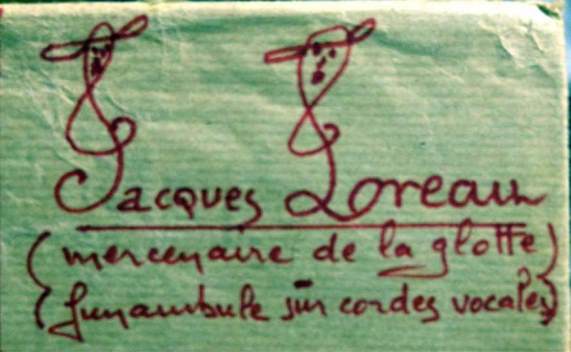 Jacques Loreau
(mercenaire de la glotte)
(funambule sur cordes vocales)